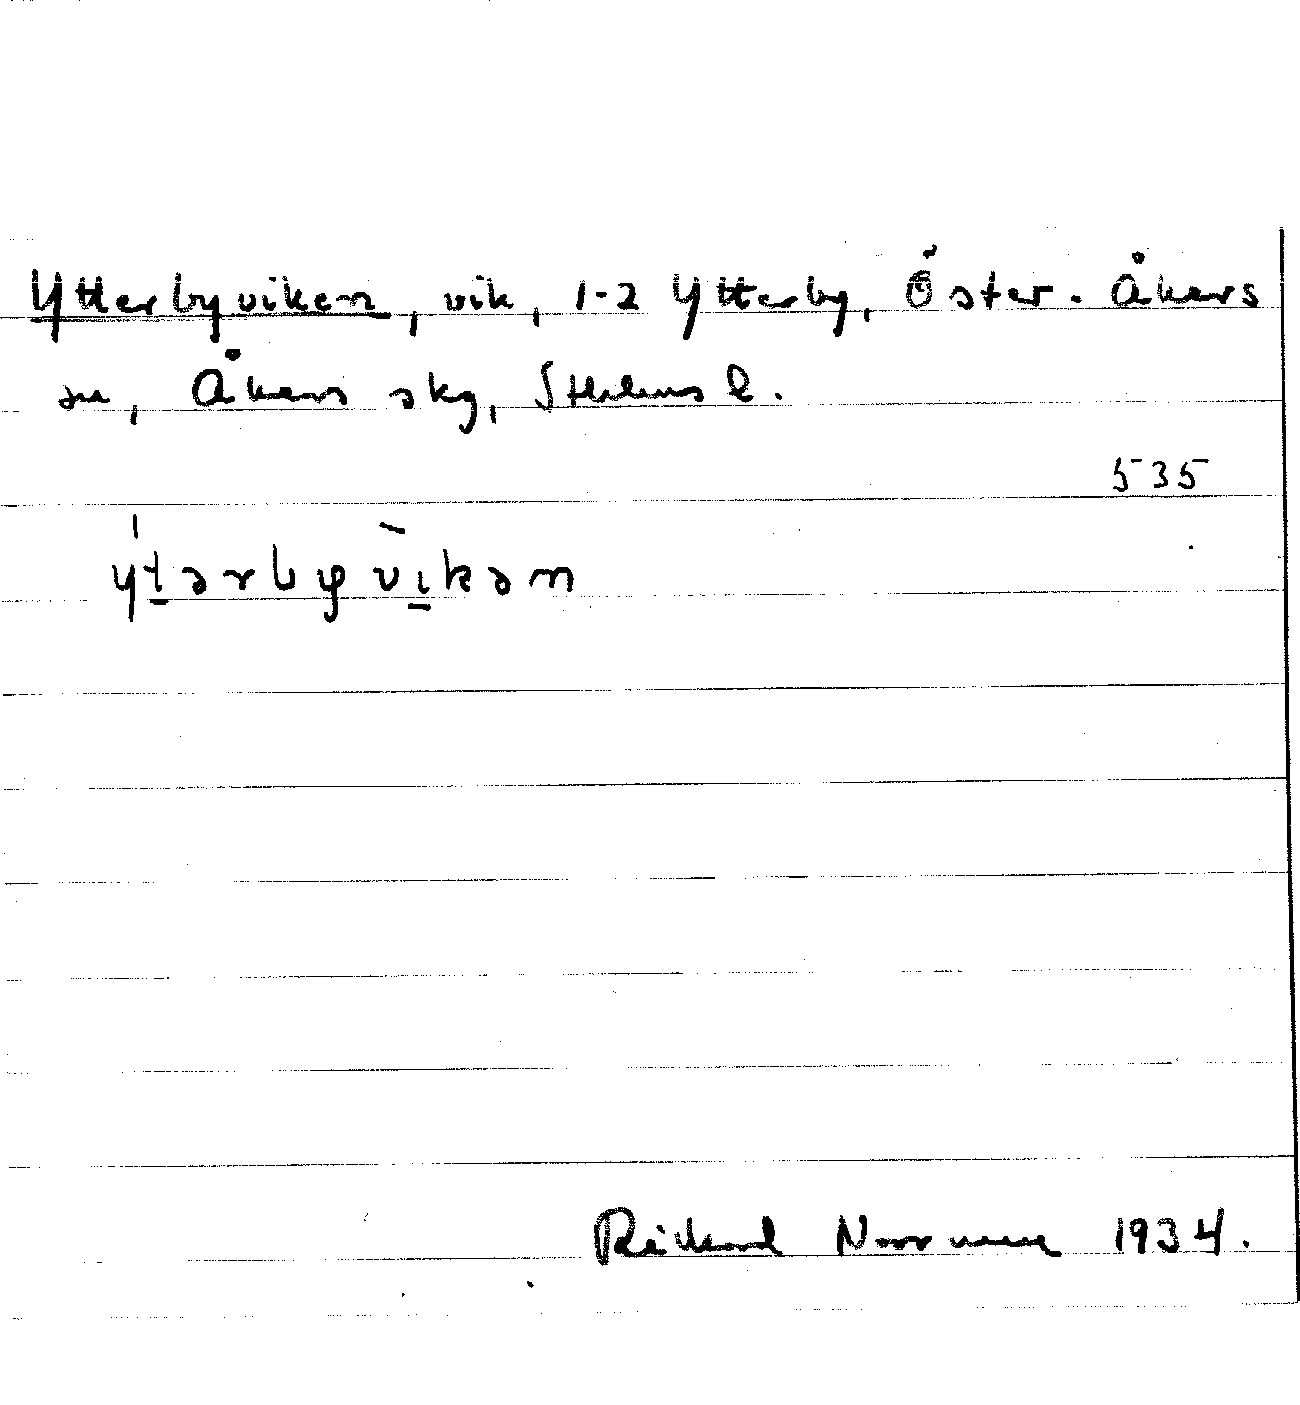 Ytterbyviken, vik, 1-2 Ytterby, Öster-Åkers
sn, Åkers skg, Sthlms l.
535
ýtərbyv̀ikən
Rickard Norrman 1934.